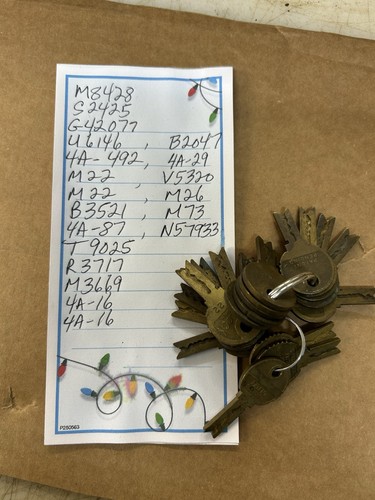 M8428
S2425
G42077
U6146, B2047
4A-492, 4A-29
M22, V5320
M22, M26
B3521, M73
4A-87, N57933
T9025
R3717
M3669
4A-16
4A-16
P280563